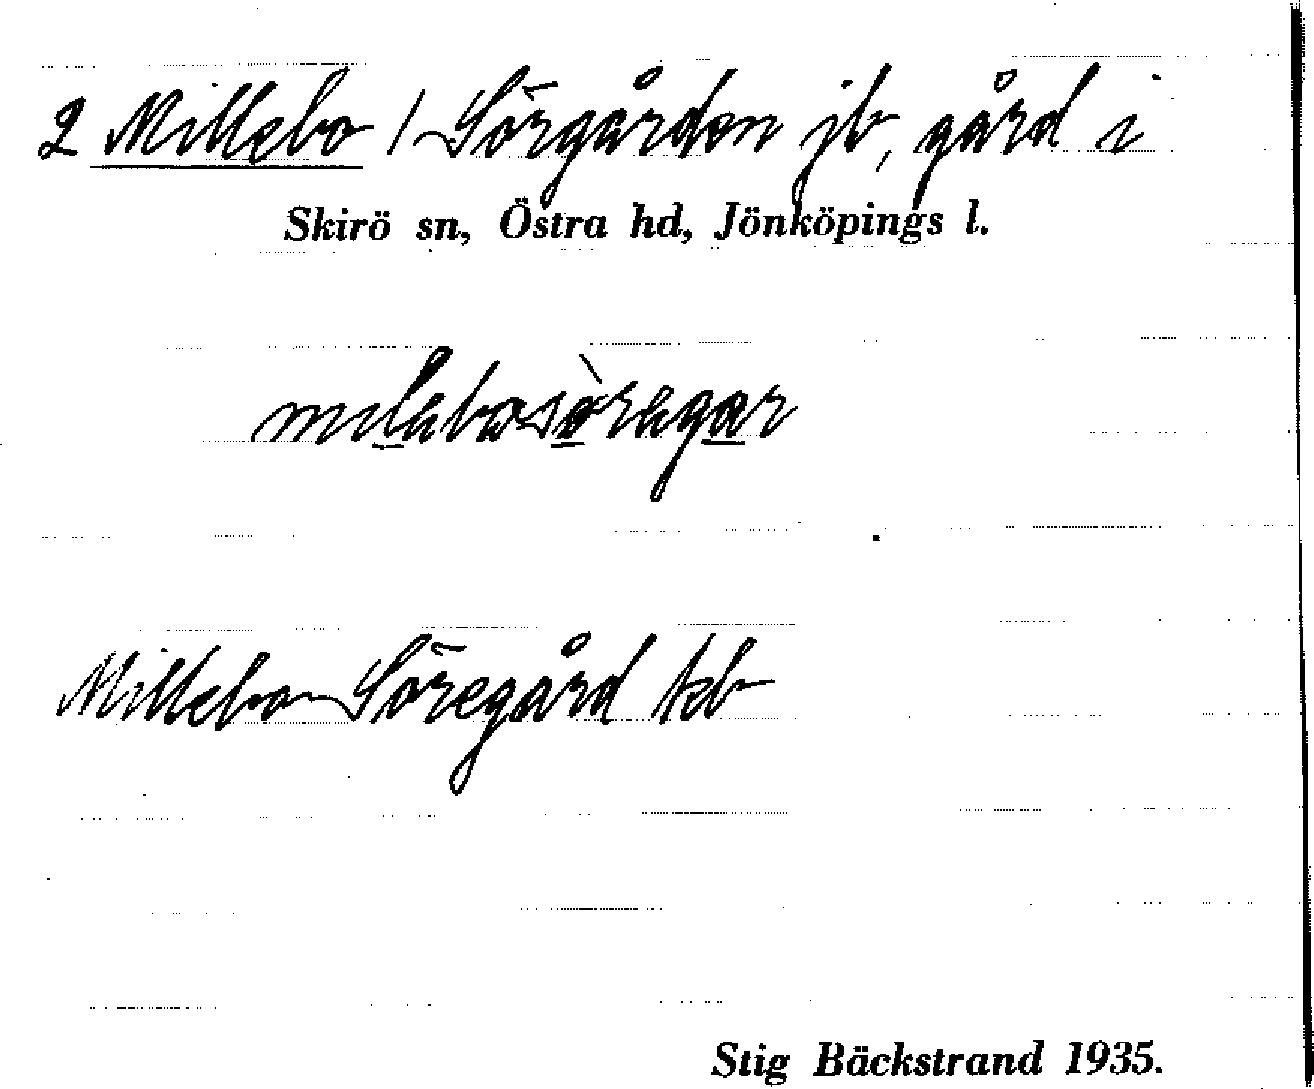 2 Millebo / ~ Sörgården jb, gård i
Skirö sn, Östra hd, Jönköpings l.
Millebo ~ Söregård kb
Stig Bäckstrand 1935.